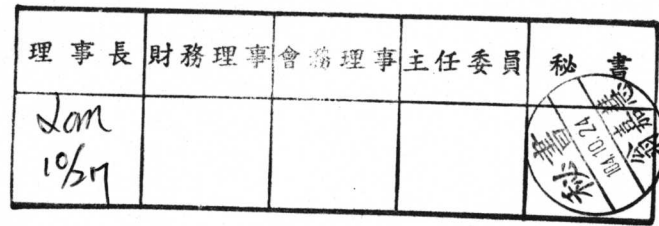 理事長 財務理事 會務理事 主任委員 秘書
10/27
秘書
104.10.24